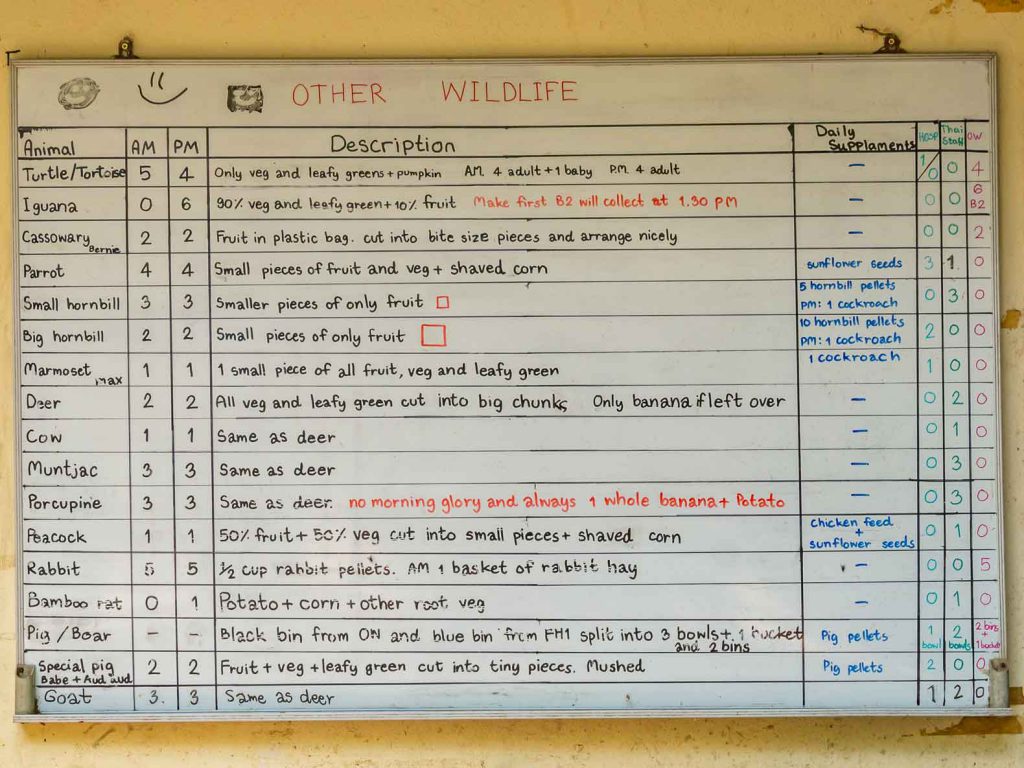 OTHER WILDLIFE
Animal AM PM Description Daily Supplaments HOSP Thai Staff OW
Turtle/Tortoise 5 4 Only veg and leafy greens + pumpkin AM. 4 adult + 1 baby P.M. 4 adult – 1/0 0 4
Iguana 0 6 90% veg and leafy green + 10% fruit Make first B2 will collect at 1.30 PM – 0 0 6 B2
Cassowary Bernie 2 2 Fruit in plastic bag. cut into bite size pieces and arrange nicely – 0 0 2
Parrot 4 4 Small pieces of fruit and veg + shaved corn sunflower seeds 3 1 0
Small hornbill 3 3 Smaller pieces of only fruit 5 hornbill pellets PM: 1 cockroach 0 3 0
Big hornbill 2 2 Small pieces of only fruit 10 hornbill pellets PM: 1 cockroach 2 0 0
Marmoset max 1 1 1 small piece of all fruit, veg and leafy green 1 cockroach 1 0 0
Deer 2 2 All veg and leafy green cut into big chunks Only banana if left over – 0 2 0
Cow 1 1 Same as deer – 0 1 0
Muntjac 3 3 Same as deer – 0 3 0
Porcupine 3 3 Same as deer. no morning glory and always 1 whole banana + Potato – 0 3 0
Peacock 1 1 50% fruit + 50% veg cut into small pieces + shaved corn chicken feed + sunflower seeds 0 1 0
Rabbit 5 5 1/2 cup rabbit pellets. AM 1 basket of rabbit hay – 0 0 5
Bamboo rat 0 1 Potato + corn + other root veg – 0 1 0
Pig / Boar – – Black bin from OW and blue bin from FH1 split into 3 bowls + 1 bucket and 2 bins Pig pellets 1 bowl 2 bowls 2 bins + 1 bucket
Special pig Babe + Aud aud 2 2 Fruit + veg + leafy green cut into tiny pieces. Mushed Pig pellets 2 0 0
Goat 3. 3 Same as deer 1 2 0